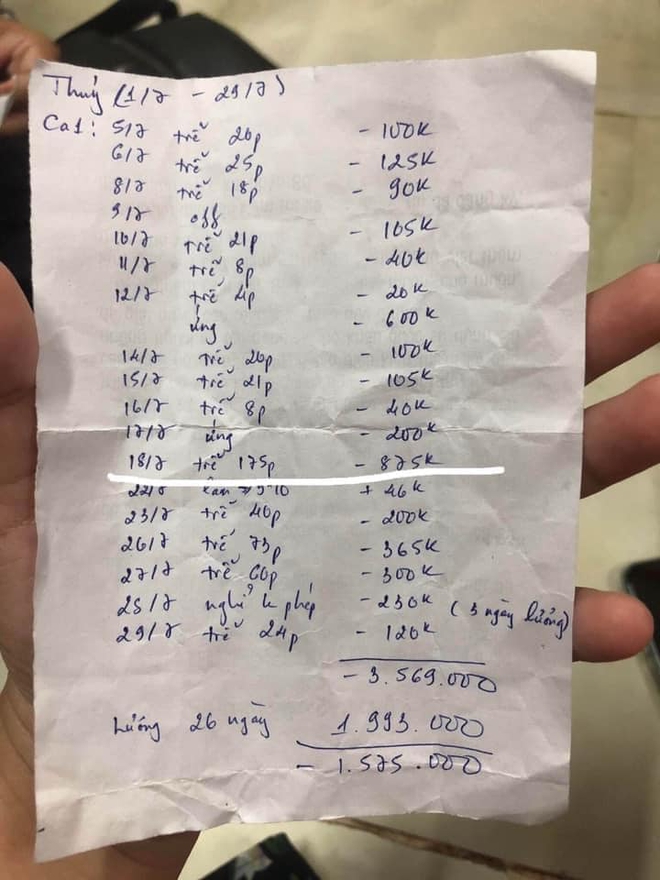 Thuý (1/7 - 29/7)
Ca1: 5/7 trễ 20p - 100k
6/7 trễ 25p - 125k
8/7 trễ 18p - 90k
9/7 off
10/7 trễ 21p - 105k
11/7 trễ 8p - 40k
12/7 trễ 4p - 20k
ứng - 600k
14/7 trễ 20p - 100k
15/7 trễ 21p - 105k
16/7 trễ 8p - 40k
17/7 ứng - 200k
18/7 trễ 175p - 875k
22/7 + 46k
23/7 trễ 40p - 200k
26/7 trễ 73p - 365k
27/7 trễ 60p - 300k
28/7 nghỉ k phép - 230k (3 ngày lương)
29/7 trễ 24p - 120k
- 3.569.000
Lương 26 ngày 1.993.000
- 1.575.000